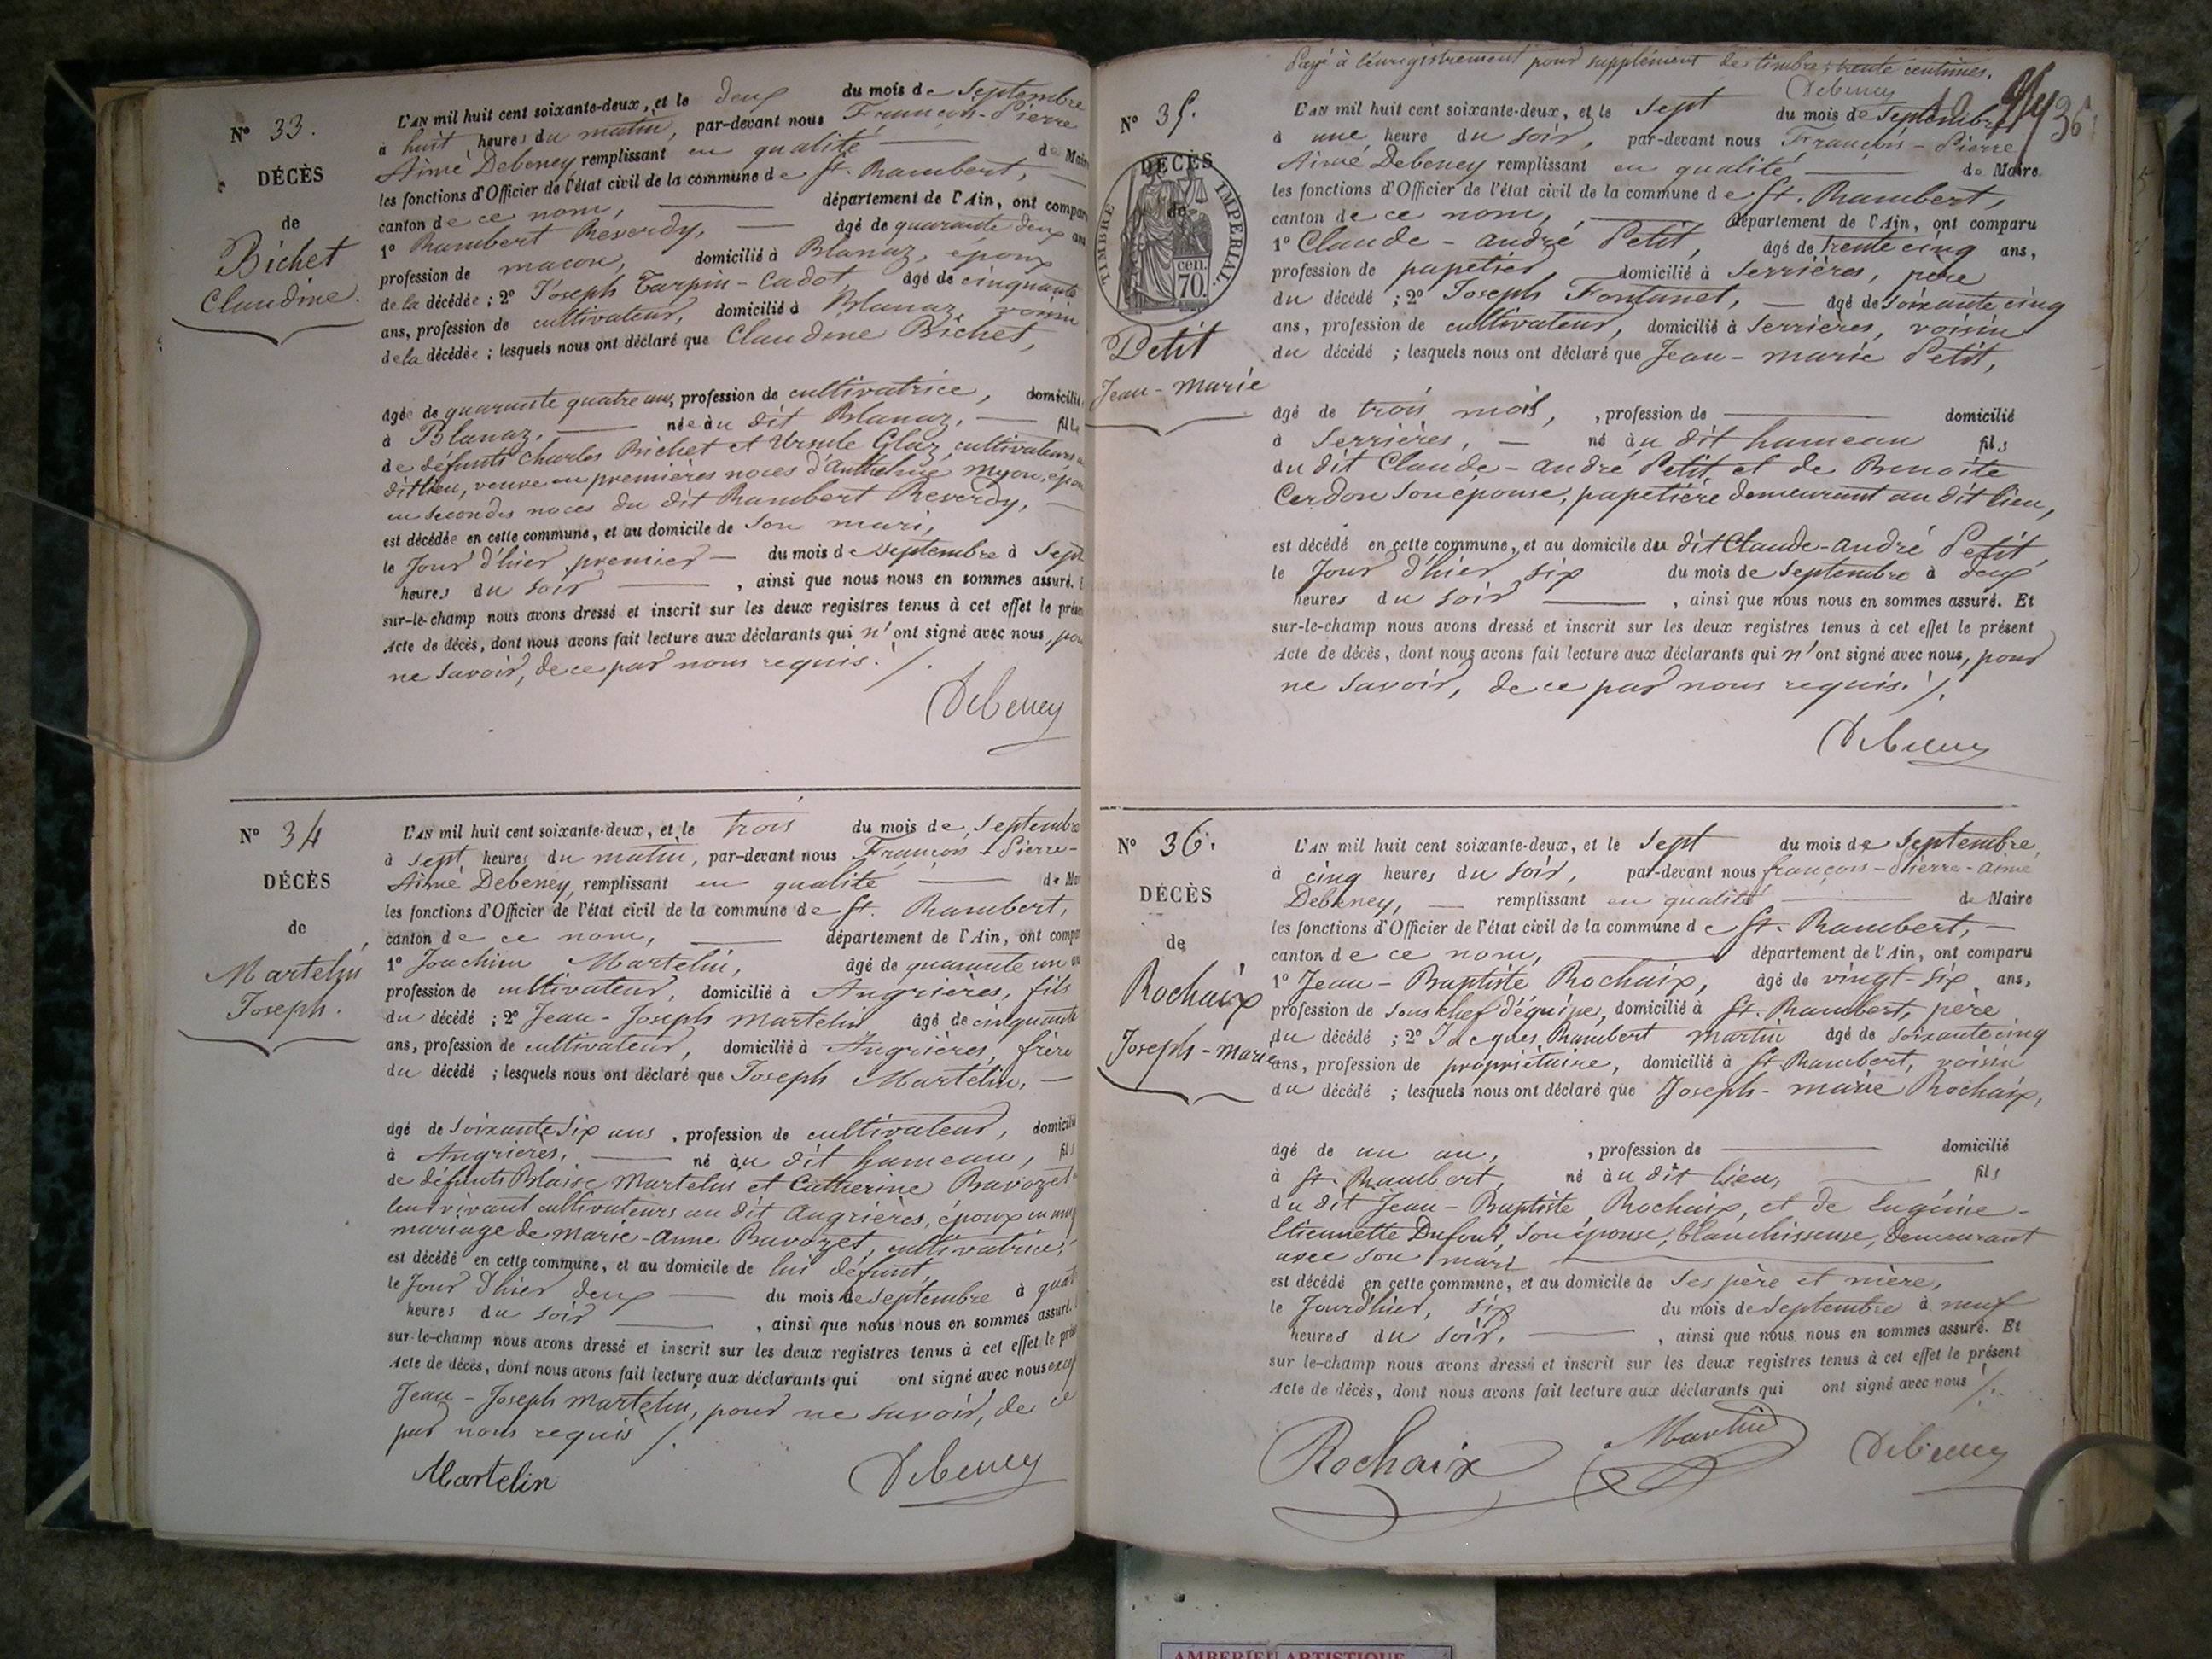 N° 33.
DÉCÈS
de
Bichet
Claudine.
L'AN mil huit cent soixante-deux, et le deux du mois de Septembre
à huit heures du matin, par-devant nous François-Pierre
Aimé Debeney, remplissant en qualité de Maire
les fonctions d'Officier de l'état civil de la commune de St. Rambert,
canton de ce nom, département de l'Ain, ont compar
1° Rambert Reverdy, âgé de quarante deux ans
profession de maçon, domicilié à Blanaz, époux
de la décédée ; 2° Joseph Tarpin-Cadot, âgé de cinquante
ans, profession de cultivateur, domicilié à Blanaz, voisin
de la décédée ; lesquels nous ont déclaré que Claudine Bichet,
âgée de quarante quatre ans, profession de cultivatrice, domicilié
à Blanaz, née au dit Blanaz, fille
de défunts Charles Bichet et Ursule Glaz, cultivateurs au
dit lieu, veuve en premières noces d'Anthelme Myon, épou
en secondes noces du dit Rambert Reverdy,
est décédée en cette commune, et au domicile de son mari,
le Jour d'hier premier du mois de Septembre à Sept
heures du soir, ainsi que nous nous en sommes assuré. E
sur-le-champ nous avons dressé et inscrit sur les deux registres tenus à cet effet le présen
Acte de décès, dont nous avons fait lecture aux déclarants qui n'ont signé avec nous, pou
ne savoir, de ce par nous requis. /.
Debeney
N° 34
DÉCÈS
de
Martelin
Joseph.
L'AN mil huit cent soixante-deux, et le trois du mois de Septembre
à sept heures du matin, par-devant nous François-Pierre-
Aimé Debeney, remplissant en qualité de Mai
les fonctions d'Officier de l'état civil de la commune de St. Rambert,
canton de ce nom, département de l'Ain, ont compar
1° Joachim Martelin, âgé de quarante un an
profession de cultivateur, domicilié à Angrières, fils
du décédé ; 2° Jean-Joseph Martelin âgé de cinquante
ans, profession de cultivateur, domicilié à Angrières, frère
du décédé ; lesquels nous ont déclaré que Joseph Martelin,
âgé de soixante six ans, profession de cultivateur, domicilié
à Angrières, né au dit hameau, fils
de défunts Blaise Martelin et Catherine Bavozet
leur vivant cultivateurs au dit Angrières, époux en
mariage de Marie-Anne Bavozet, cultivatrice,
est décédé en cette commune, et au domicile de lui défunt,
le Jour d'hier deux du mois de Septembre à quat
heures du soir, ainsi que nous nous en sommes assuré.
sur-le-champ nous avons dressé et inscrit sur les deux registres tenus à cet effet le prés
Acte de décès, dont nous avons fait lecture aux déclarants qui ont signé avec nous excep
Jean-Joseph Martelin, pour ne savoir, de ce
par nous requis /.
Martelin Debeney
Payé à l'enregistrement pour supplément de timbre, trente centimes.
Debeney
36
N° 35.
DÉCÈS
de
TIMBRE IMPERIAL.
70 cen.
Petit
Jean-Marie
L'AN mil huit cent soixante-deux, et le Sept du mois de Septembre
à une heure du soir, par-devant nous François-Pierre
Aimé Debeney remplissant en qualité de Maire
les fonctions d'Officier de l'état civil de la commune de St. Rambert,
canton de ce nom, département de l'Ain, ont comparu
1° Claude-André Petit, âgé de trente cinq ans,
profession de papetier, domicilié à Serrières, père
du décédé ; 2° Joseph Fontanet, âgé de soixante cinq
ans, profession de cultivateur, domicilié à Serrières, voisin
du décédé ; lesquels nous ont déclaré que Jean-Marie Petit,
âgé de trois mois, , profession de domicilié
à Serrières, né au dit hameau fils
du dit Claude-André Petit et de Benoite
Cerdon son épouse, papetière demeurant au dit lieu,
est décédé en cette commune, et au domicile du dit Claude-André Petit,
le Jour d'hier six du mois de Septembre à deux
heures du soir, ainsi que nous nous en sommes assuré. Et
sur-le-champ nous avons dressé et inscrit sur les deux registres tenus à cet effet le présent
Acte de décès, dont nous avons fait lecture aux déclarants qui n'ont signé avec nous, pour
ne savoir, de ce par nous requis. /.
Debeney
N° 36.
DÉCÈS
de
Rochaix
Joseph-Marie
L'AN mil huit cent soixante-deux, et le Sept du mois de Septembre,
à cinq heures du soir, par-devant nous François-Pierre-Aimé
Debeney, remplissant en qualité de Maire
les fonctions d'Officier de l'état civil de la commune de St. Rambert,
canton de ce nom, département de l'Ain, ont comparu
1° Jean-Baptiste Rochaix, âgé de vingt-six ans,
profession de sous chef d'équipe, domicilié à St. Rambert, père
du décédé ; 2° Jacques Rambert Martin âgé de soixante cinq
ans, profession de propriétaire, domicilié à St. Rambert, voisin
du décédé ; lesquels nous ont déclaré que Joseph-Marie Rochaix,
âgé de un an, , profession de domicilié
à St. Rambert, né au dit lieu, fils
du dit Jean-Baptiste Rochaix, et de Eugénie-
Etiennette Dufour, son épouse, blanchisseuse, demeurant
avec son mari
est décédé en cette commune, et au domicile de ses père et mère,
le Jour d'hier, six du mois de Septembre à neuf
heures du soir, ainsi que nous nous en sommes assuré. Et
sur le-champ nous avons dressé et inscrit sur les deux registres tenus à cet effet le présent
Acte de décès, dont nous avons fait lecture aux déclarants qui ont signé avec nous /.
Rochaix Martin Debeney
AMBERIEU ARTISTIQUE